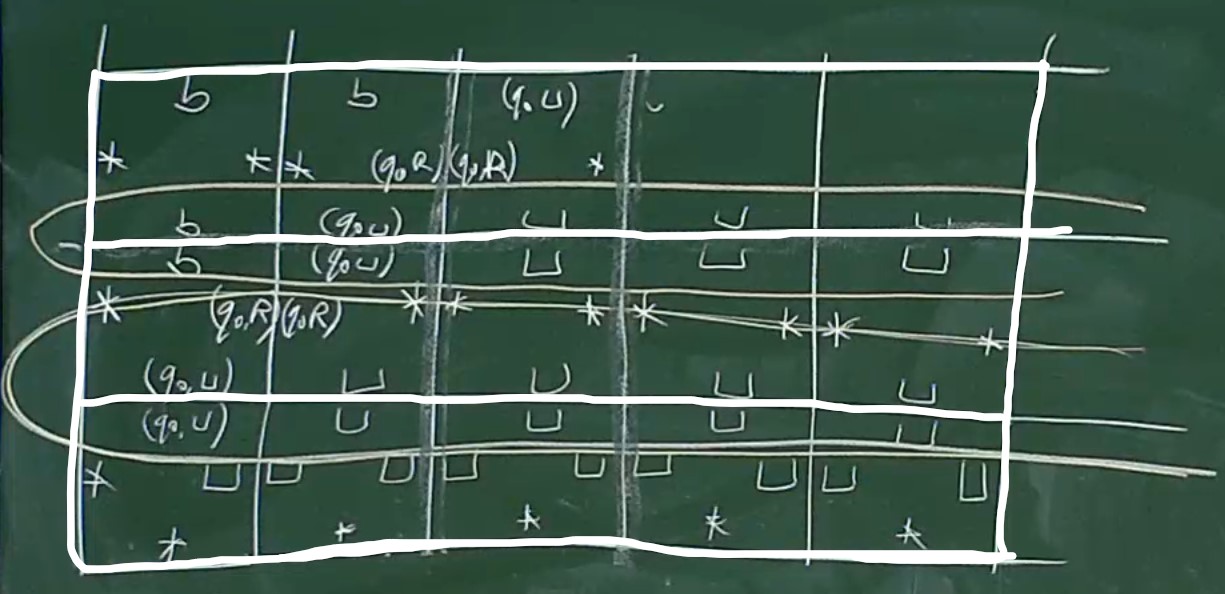 b b (q₀ ⊔) ⊔
* * * (q₀,R) (q₀,R) *
b (q₀ ⊔) ⊔ ⊔ ⊔
b (q₀ ⊔) ⊔ ⊔ ⊔
* (q₀,R) (q₀R) * * * * * * *
(q₀,⊔) ⊔ ⊔ ⊔ ⊔
(q₀,⊔) ⊔ ⊔ ⊔ ⊔
* ⊔ ⊔ ⊔ ⊔ ⊔ ⊔ ⊔ ⊔ ⊔
* * * * *